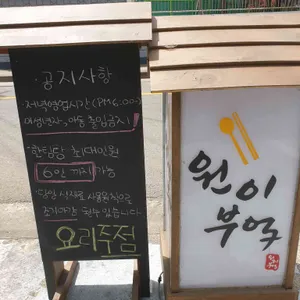 ·공지사항·
·저녁영업시간 (PM 6:00~)
미성년자, 아동 출입금지
·한팀당 최대인원
6인 까지 가능
·당일 식재료 사용원칙으로
조기마감 될수 있습니다
요리주점
원이
부엌